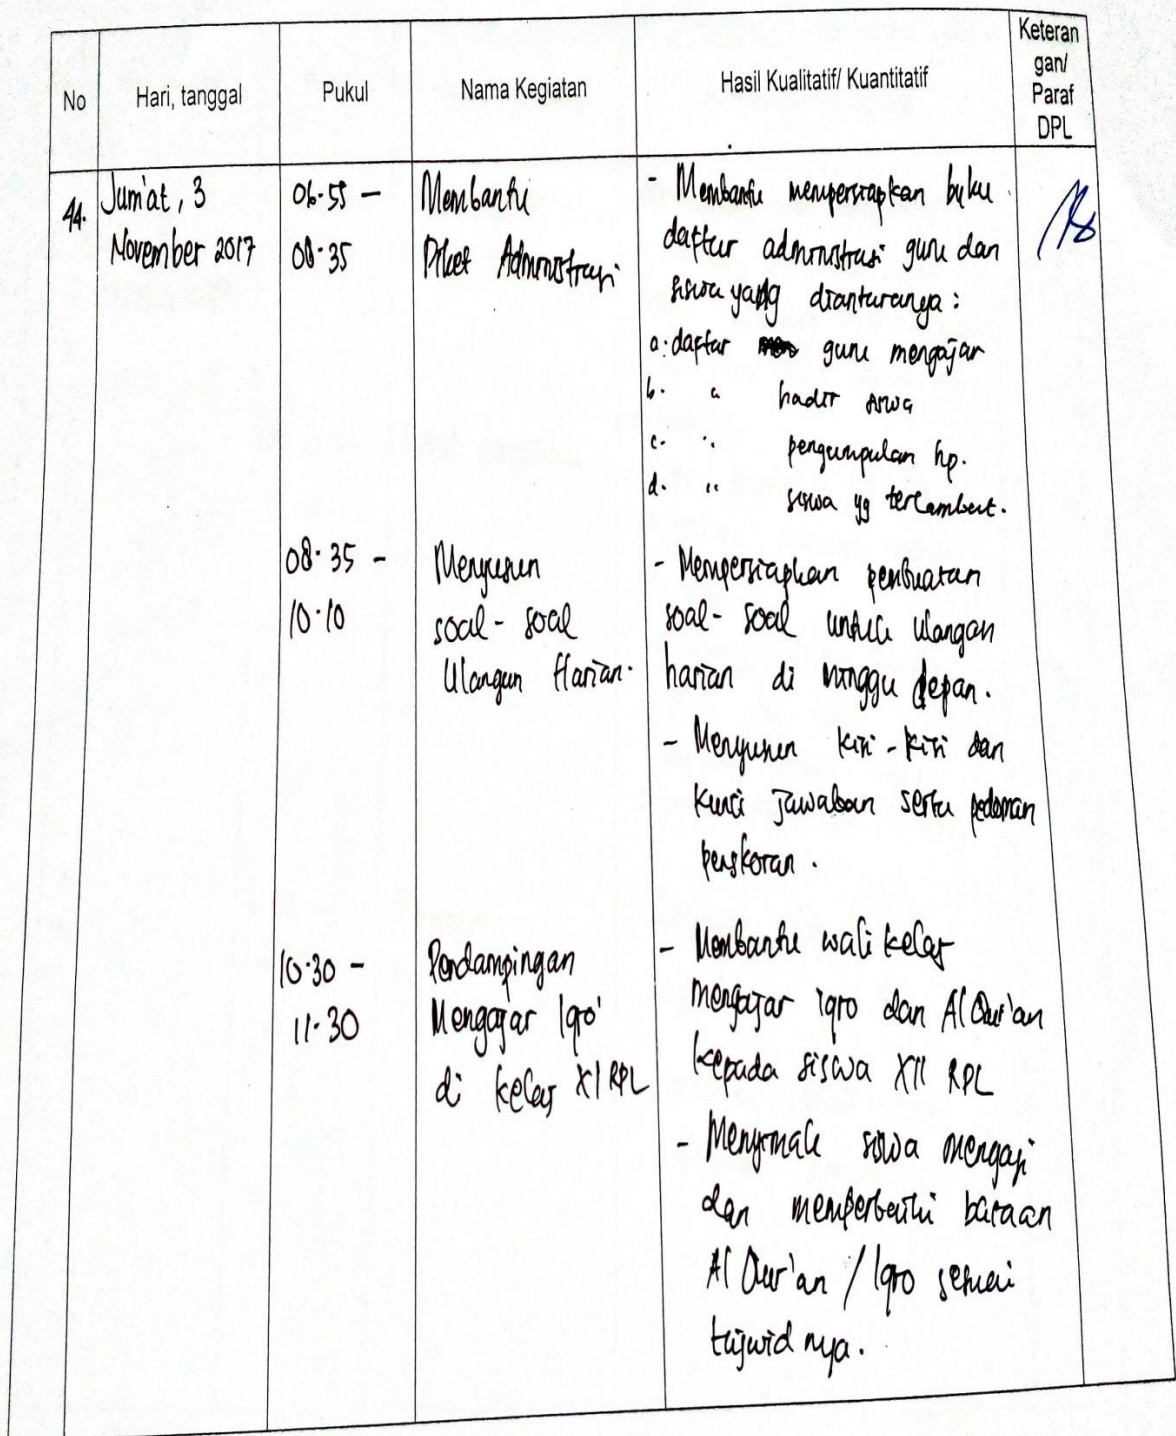 No
Hari, tanggal
Pukul
Nama Kegiatan
Hasil Kualitatif/ Kuantitatif
Keteran
gan/
Paraf
DPL
44.
Jum'at, 3
November 2017
06.55 -
08.35
Membantu
Piket Administrasi
- Membantu mempersiapkan buku
daftar administrasi guru dan
siswa yang diantaranya :
a. daftar guru mengajar
b. " hadir siswa
c. " pengumpulan hp.
d. " siswa yg terlambat.
08.35 -
10.10
Menyusun
soal - soal
Ulangan Harian.
- Mempersiapkan pembuatan
soal - soal untuk ulangan
harian di minggu depan.
- Menyusun kisi - kisi dan
kunci jawaban serta pedoman
penskoran .
10.30 -
11.30
Pendampingan
Mengajar Iqro'
di kelas XI RPL
- Membantu wali kelas
mengajar iqro dan Al Qur'an
kepada siswa XII RPL
- Menyimak siswa mengaji
dan memperbaiki bacaan
Al Qur'an / Iqro sesuai
tajwid nya.